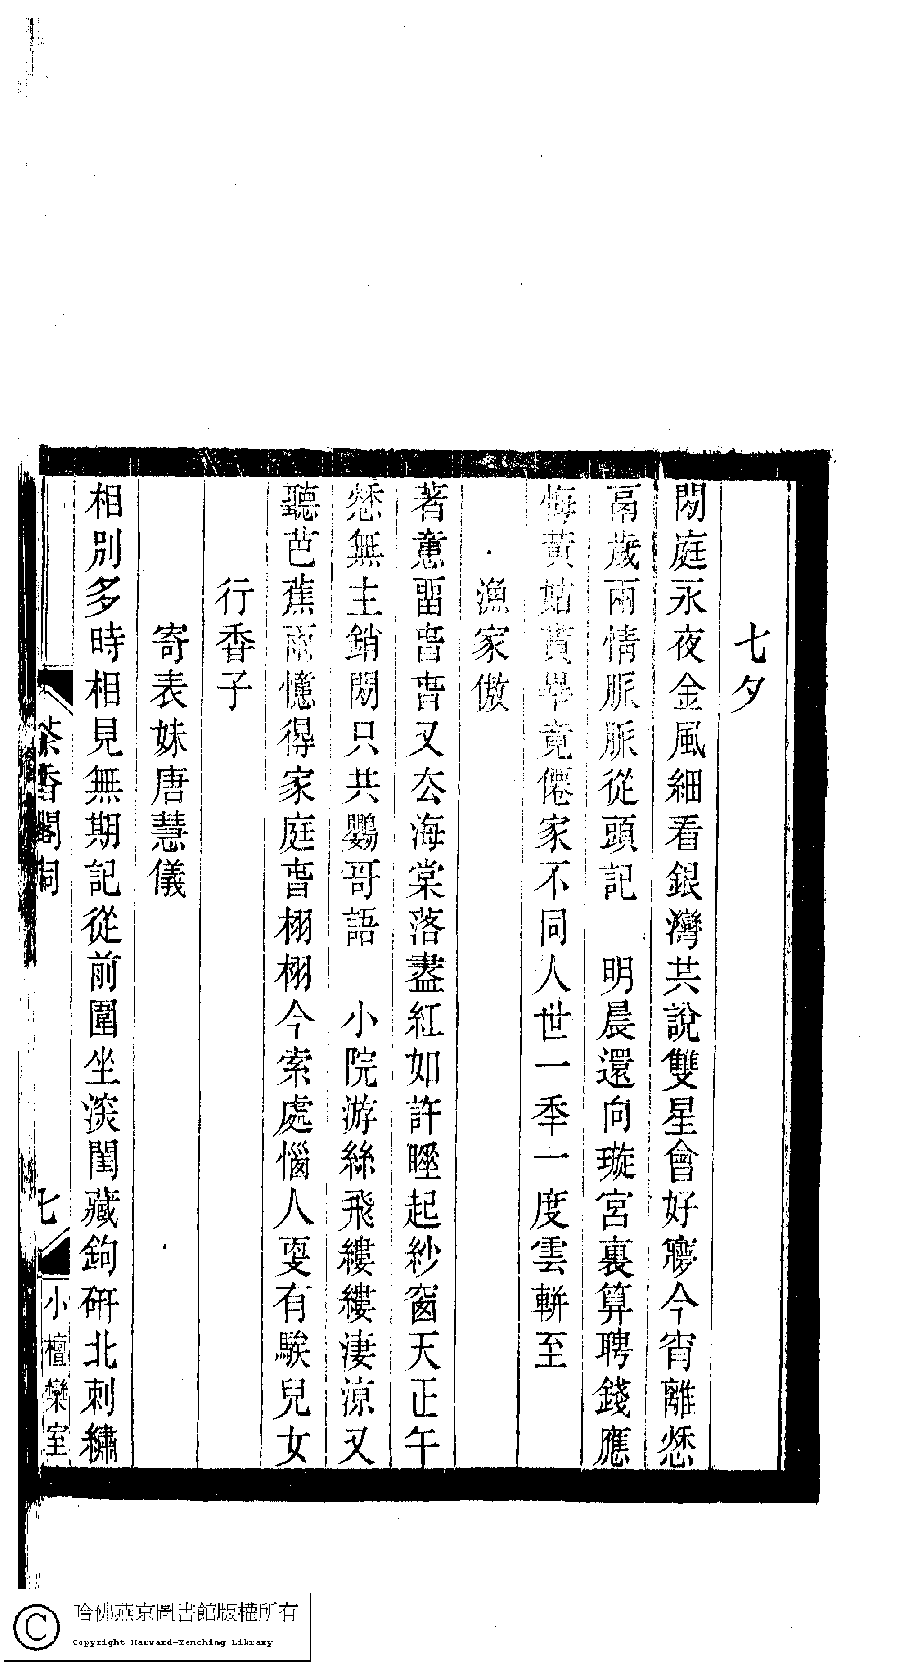 七夕
閑庭永夜金風細看銀灣共說雙星會好夢今宵離愁
鬲歲兩情脈脈從頭記　明晨還向璇宮裏算聘錢應
悔黃姑貰畢竟僊家不同人世一秊一度雲軿至
漁家傲
著意留旾旾又去海棠落盡紅如許睡起紗窗天正午
愁無主銷閑只共鸚哥語　小院游絲飛縷縷淒涼又
聽芭蕉雨憶得家庭旾栩栩今索處惱人更有騃兒女
行香子
寄表妹唐慧儀
相別多時相見無期記從前圍坐深閨藏鉤研北刺繡
茶香閣詞
七
小檀欒室
哈佛燕京圖書館版權所有
Copyright Harvard-Yenching Library